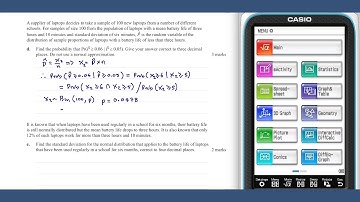 A supplier of laptops decides to take a sample of 100 new laptops from a number of different
schools. For samples of size 100 from the population of laptops with a mean battery life of three
hours and 10 minutes and standard deviation of six minutes, P̂ is the random variable of the
distribution of sample proportions of laptops with a battery life of less than three hours.
d. Find the probability that Pr(P̂ ≥ 0.06 | P̂ ≥ 0.05). Give your answer correct to three decimal
places. Do not use a normal approximation. 3 marks
P̂ = X/n ⇒ X = P̂ × n
∴ Prob (P̂ ≥ 0.06 | P̂ ≥ 0.05) = Prob (X ≥ 6 | X ≥ 5)
= Prob (X ≥ 6 ∩ X ≥ 5) / Prob (X ≥ 5)
X ~ Bin (100, p) p = 0.0478
It is known that when laptops have been used regularly in a school for six months, their battery life
is still normally distributed but the mean battery life drops to three hours. It is also known that only
12% of such laptops work for more than three hours and 10 minutes.
e. Find the standard deviation for the normal distribution that applies to the battery life of laptops
that have been used regularly in a school for six months, correct to four decimal places. 2 marks
CASIO
MENU
Main
eActivity
Statistics
Spread-
sheet
Graph&
Table
3D Graph
Geometry
Picture
Plot
Interactive
DiffCalc
Conics
DiffEq-
Graph
Settings
Menu
Main
Resize
Swap
Rotate
Esc